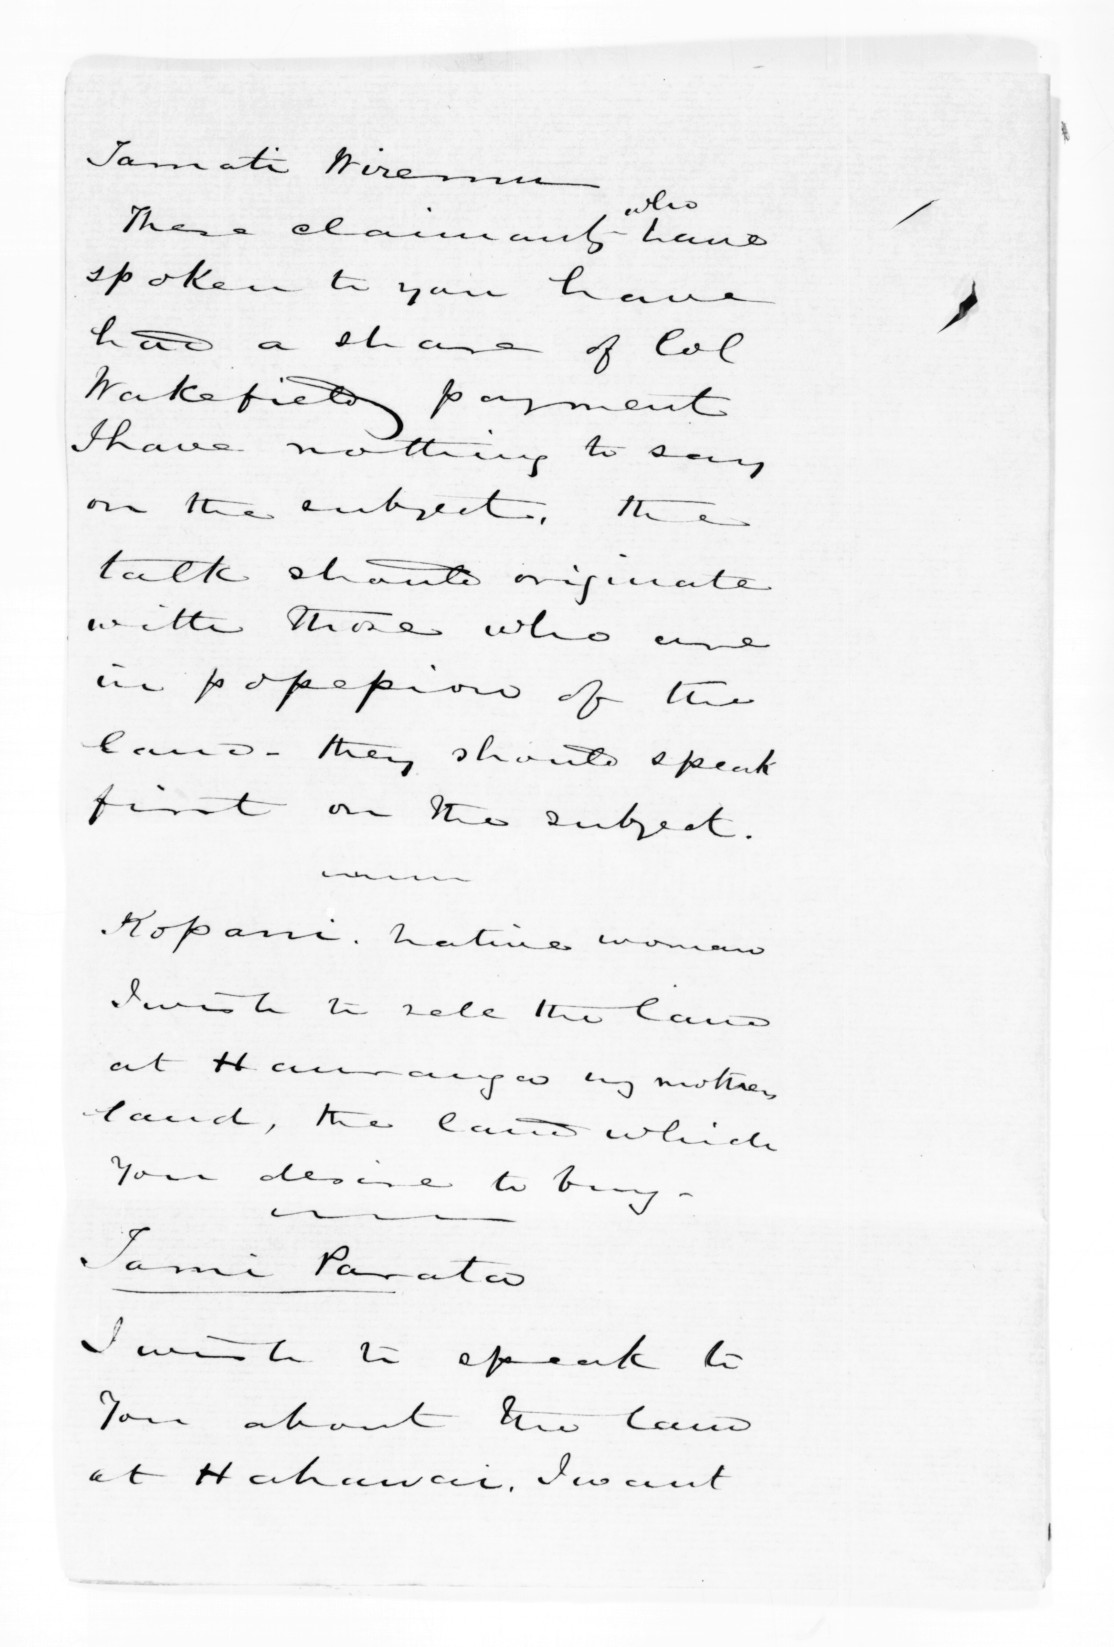 Tamati Wiremu
These claimants who have
spoken to you have
had a share of Col
Wakefields payment
I have nothing to say
on the subject, the
talk should originate
with those who are
in possession of the
land - they should speak
first on the subject.
Kopani. native woman
I wish to sell the land
at Hauranga my mothers
land, the land which
You desire to buy -
Tami Parata
I wish to speak to
You about the land
at Hahawai. I want